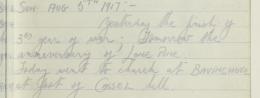 Sun. Aug 5TH 1917:-
Yesterday the finish of
3rd year of war; Tomorrow the
anniversary of Love Dine.
Today went to church at BAVINCHOVE
at foot of Cassel hill.